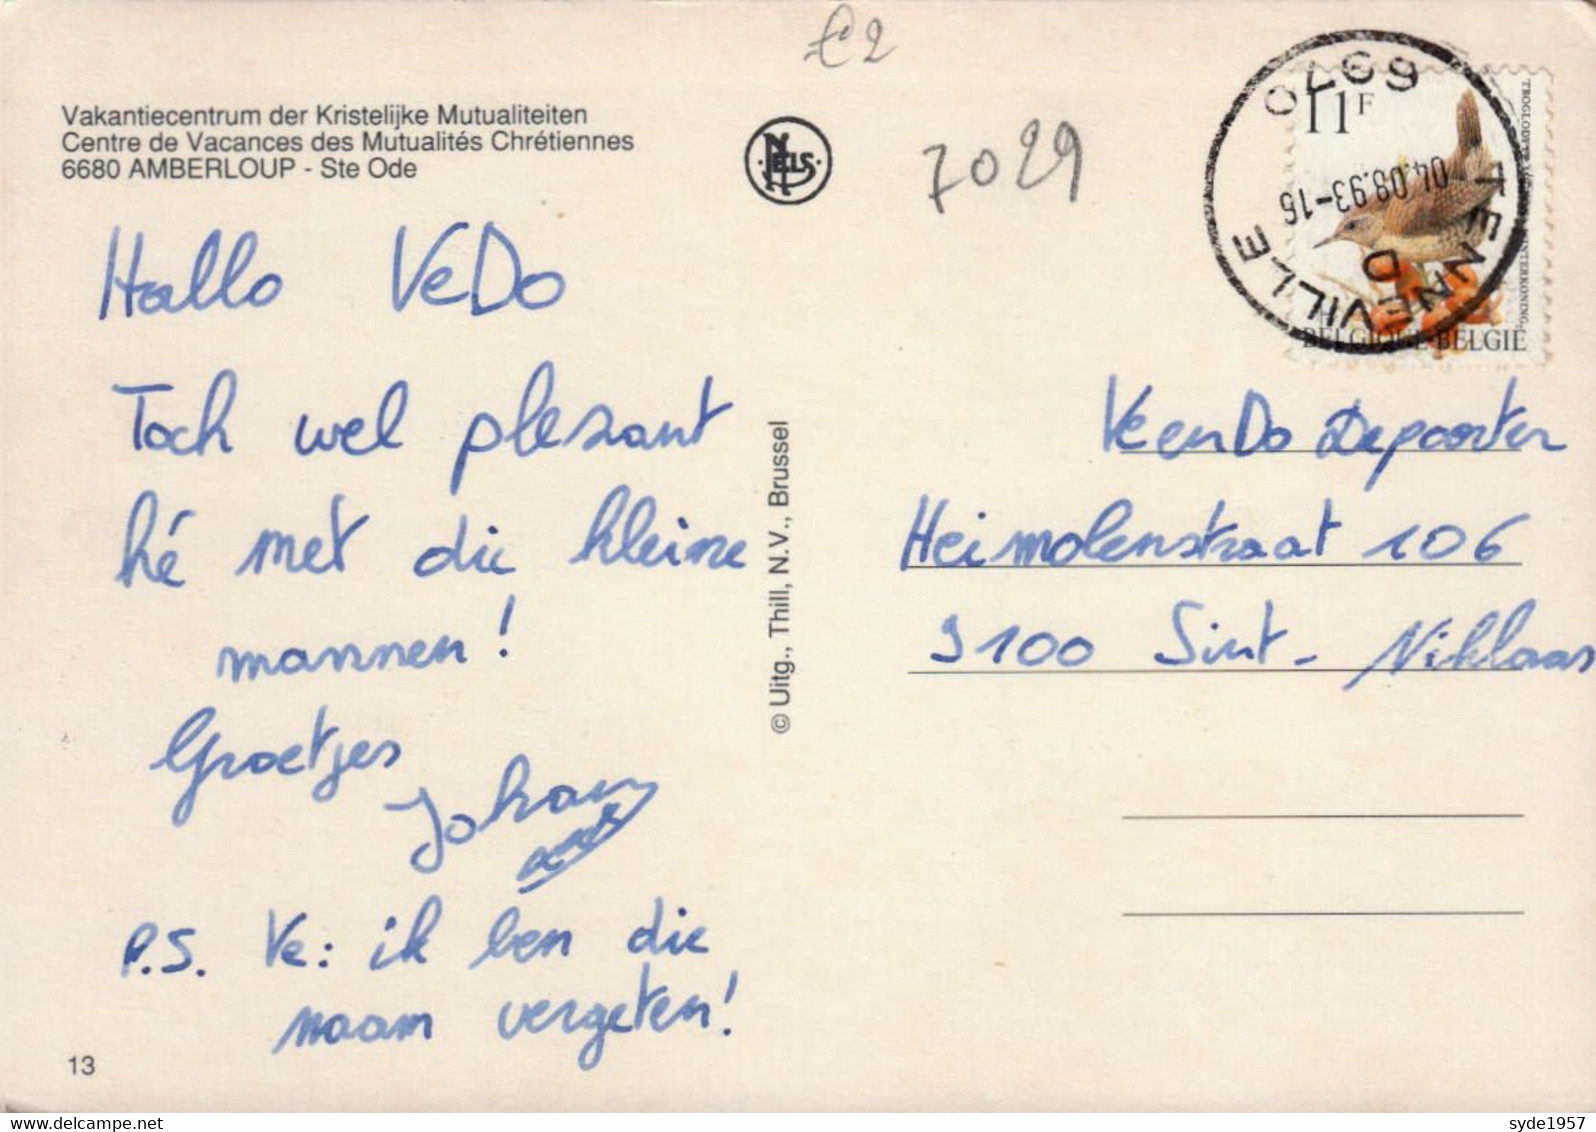 €2
Vakantiecentrum der Kristelijke Mutualiteiten
Centre de Vacances des Mutualités Chrétiennes
6680 AMBERLOUP - Ste Ode
NELS
7029
6970
TENNEVILLE
04.08.93-16
D
11F
BELGIQUE-BELGIE
Hallo VeDo
Toch wel plezant
hé met die kleine
mannen!
Groetjes
Johan
P.S. Ve: ik ben die
naam vergeten!
13
© Uitg., Thill, N.V., Brussel
Ve en Do Depoorter
Heimolenstraat 106
9100 Sint-Niklaas
syde1957